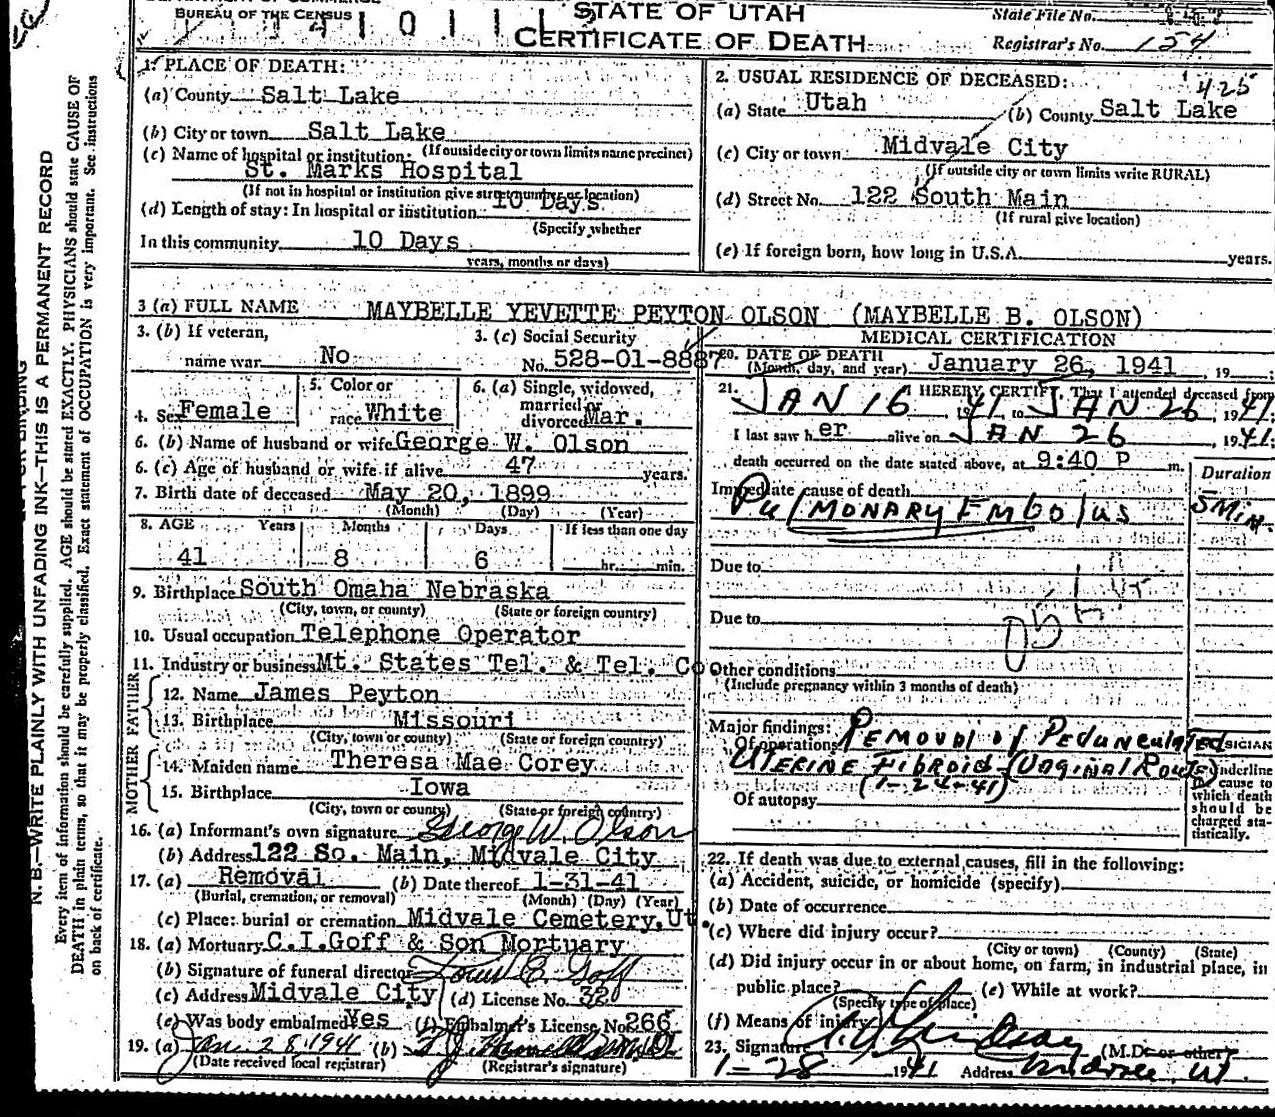 BUREAU OF THE CENSUS
STATE OF UTAH
CERTIFICATE OF DEATH
State File No.
Registrar's No. 154
N. B.—WRITE PLAINLY WITH UNFADING INK—THIS IS A PERMANENT RECORD
Every item of information should be carefully supplied. AGE should be stated EXACTLY. PHYSICIANS should state CAUSE OF
DEATH in plain terms, so that it may be properly classified. Exact statement of OCCUPATION is very important. See instructions
on back of certificate.
1. PLACE OF DEATH:
(a) County Salt Lake
(b) City or town Salt Lake
(If outside city or town limits name precinct)
(c) Name of hospital or institution:
St. Marks Hospital
(If not in hospital or institution give street number or location)
(d) Length of stay: In hospital or institution 10 Days
(Specify whether
In this community 10 Days
years, months or days)
2. USUAL RESIDENCE OF DECEASED: 425
(a) State Utah (b) County Salt Lake
(c) City or town Midvale City
(If outside city or town limits write RURAL)
(d) Street No. 122 South Main
(If rural give location)
(e) If foreign born, how long in U.S.A. years.
3 (a) FULL NAME MAYBELLE YEVETTE PEYTON OLSON (MAYBELLE B. OLSON)
3. (b) If veteran,
name war No
3. (c) Social Security
No. 528-01-8887
4. Sex Female
5. Color or
race White
6. (a) Single, widowed,
married or
divorced Mar.
6. (b) Name of husband or wife George W. Olson
6. (c) Age of husband or wife if alive 47 years.
7. Birth date of deceased May 20, 1899
(Month) (Day) (Year)
8. AGE Years Months Days If less than one day
41 8 6 hr. min.
9. Birthplace South Omaha Nebraska
(City, town, or county) (State or foreign country)
10. Usual occupation Telephone Operator
11. Industry or business Mt. States Tel. & Tel. Co
FATHER
12. Name James Peyton
13. Birthplace Missouri
(City, town, or county) (State or foreign country)
MOTHER
14. Maiden name Theresa Mae Corey
15. Birthplace Iowa
(City, town or county) (State or foreign country)
16. (a) Informant's own signature George W. Olson
(b) Address 122 So. Main, Midvale City
17. (a) Removal (b) Date thereof 1-31-41
(Burial, cremation, or removal) (Month) (Day) (Year)
(c) Place: burial or cremation Midvale Cemetery, Ut.
18. (a) Mortuary C.I.Goff & Son Mortuary
(b) Signature of funeral director
(c) Address Midvale City (d) License No. 320
(e) Was body embalmed Yes (f) Embalmer's License No. 266
19. (a) Jan 28 1941 (b)
(Date received local registrar) (Registrar's signature)
MEDICAL CERTIFICATION
20. DATE OF DEATH
(Month, day, and year) January 26, 1941, 19
21. I HEREBY CERTIFY, That I attended deceased from
JAN 16, 1941, to JAN 26, 1941.
I last saw her alive on JAN 26, 1941.
death occurred on the date stated above, at 9:40 P m.
Duration
Immediate cause of death
Pulmonary Embolus 5 Min.
Due to
Due to
Other conditions
(Include pregnancy within 3 months of death)
Major findings:
Of operations Removal of Pedunculated
Uterine Fibroid (Vaginal Route)
(1-24-41)
Of autopsy
SICIAN
Underline
the cause to
which death
should be
charged sta-
tistically.
22. If death was due to external causes, fill in the following:
(a) Accident, suicide, or homicide (specify)
(b) Date of occurrence
(c) Where did injury occur?
(City or town) (County) (State)
(d) Did injury occur in or about home, on farm, in industrial place, in
public place? (e) While at work?
(Specify type of place)
(f) Means of injury
23. Signature (M.D. or other)
1-28 1941 Address Midvale, Ut